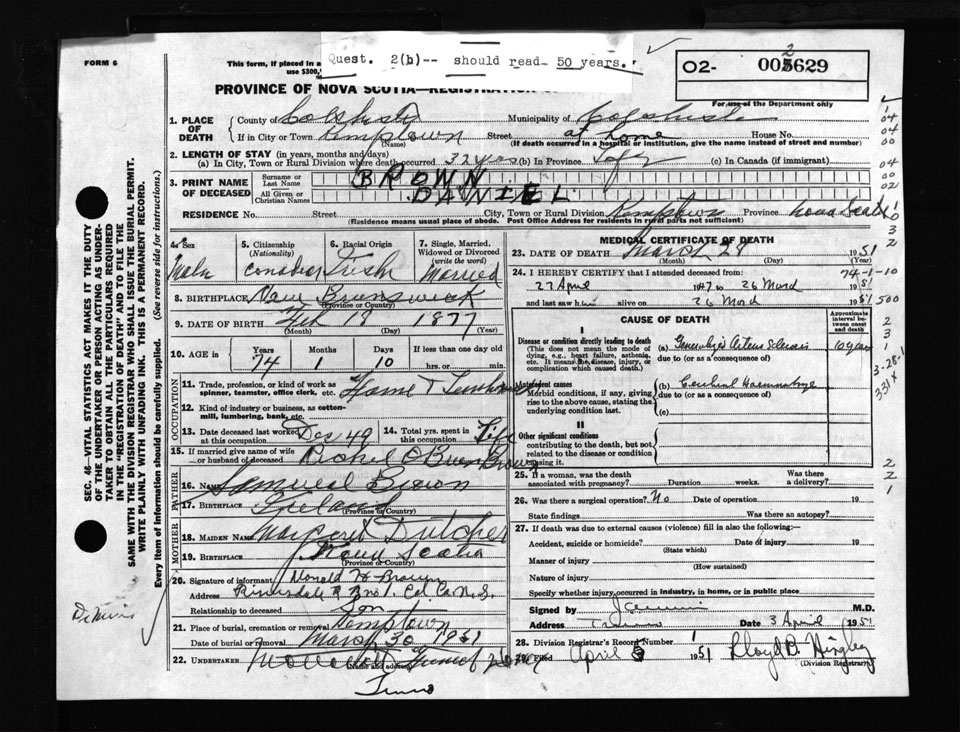 FORM 6
This form, if placed in a
use $300,
Quest. 2(b)-- should read- 50 years.
O2- 005629
2
PROVINCE OF NOVA SCOTIA—REGISTRATION
For use of the Department only
1. PLACE OF DEATH
County of Colchester
Municipality of Colchester
If in City or Town Kemptown Street at home House No.
(Name)
(If death occurred in a hospital or institution, give the name instead of street and number)
2. LENGTH OF STAY (in years, months and days)
(a) In City, Town or Rural Division where death occurred 32 yrs (b) In Province Life (c) In Canada (if immigrant)
3. PRINT NAME OF DECEASED
Surname or Last Name BROWN
All Given or Christian Names DANIEL
RESIDENCE No. Street City, Town or Rural Division Kemptown Province Nova Scotia
(Residence means usual place of abode. Post Office Address for residents in rural parts not sufficient)
4. Sex Male
5. Citizenship (Nationality) Canadian
6. Racial Origin Irish
7. Single, Married, Widowed or Divorced (write the word) Married
8. BIRTHPLACE New Brunswick
(Province or Country)
9. DATE OF BIRTH Feb 18 1877
(Month) (Day) (Year)
10. AGE in Years Months Days If less than one day
74 1 10 hrs. or min.
OCCUPATION
11. Trade, profession, or kind of work as spinner, teamster, office clerk, etc. Farmer
12. Kind of industry or business, as cotton-mill, lumbering, bank, etc.
13. Date deceased last worked at this occupation Dec 49
14. Total yrs. spent in this occupation Life
15. If married give name of wife or husband of deceased Rachel O'Brien Brown
FATHER
16. NAME Samuel Brown
17. BIRTHPLACE Ireland
(Province or Country)
MOTHER
18. MAIDEN NAME Margaret Dutcher
19. BIRTHPLACE Nova Scotia
(Province or Country)
20. Signature of informant Donald H Brown
Address Riversdale R R No 1. Col. Co. N.S.
Relationship to deceased Son
21. Place of burial, cremation or removal Kemptown
Date of burial or removal March 30 1951
22. UNDERTAKER Funeral Home
(Name and address)
Truro
MEDICAL CERTIFICATE OF DEATH
23. DATE OF DEATH March 28 1951
(Month) (Day) (Year)
24. I HEREBY CERTIFY that I attended deceased from: 74-1-10
27 April 1947 to 26 March 1951
and last saw him alive on 26 March 1951
500
CAUSE OF DEATH
Approximate interval between onset and death
I
Disease or condition directly leading to death
(This does not mean the mode of dying, e.g., heart failure, asthenia, etc. It means the disease, injury, or complication which caused death.)
(a) Generalized Arterio Sclerosis 10 years
due to (or as a consequence of)
Antecedent causes
Morbid conditions, if any, giving rise to the above cause, stating the underlying condition last.
(b) Cerebral Haemorrhage
due to (or as a consequence of)
(c)
II
Other significant conditions
contributing to the death, but not related to the disease or condition causing it.
25. If a woman, was the death associated with pregnancy? Duration weeks. Was there a delivery?
26. Was there a surgical operation? No Date of operation 19
State findings Was there an autopsy?
27. If death was due to external causes (violence) fill in also the following:—
Accident, suicide or homicide? Date of injury 19
(State which)
Manner of injury
(How sustained)
Nature of injury
Specify whether injury occurred in industry, in home, or in public place
Signed by M.D.
Address Truro Date 3 April 1951
28. Division Registrar's Record Number 1
29. Filed April 1951 Lloyd B. Hingley
(Division Registrar)
SEC. 46—VITAL STATISTICS ACT MAKES IT THE DUTY
OF THE UNDERTAKER OR PERSON ACTING AS UNDER-
TAKER TO OBTAIN ALL THE PARTICULARS REQUIRED
IN THE "REGISTRATION OF DEATH" AND TO FILE THE
SAME WITH THE DIVISION REGISTRAR WHO SHALL ISSUE THE BURIAL PERMIT.
WRITE PLAINLY WITH UNFADING INK. THIS IS A PERMANENT RECORD.
Every item of information should be carefully supplied. (See reverse side for instructions.)